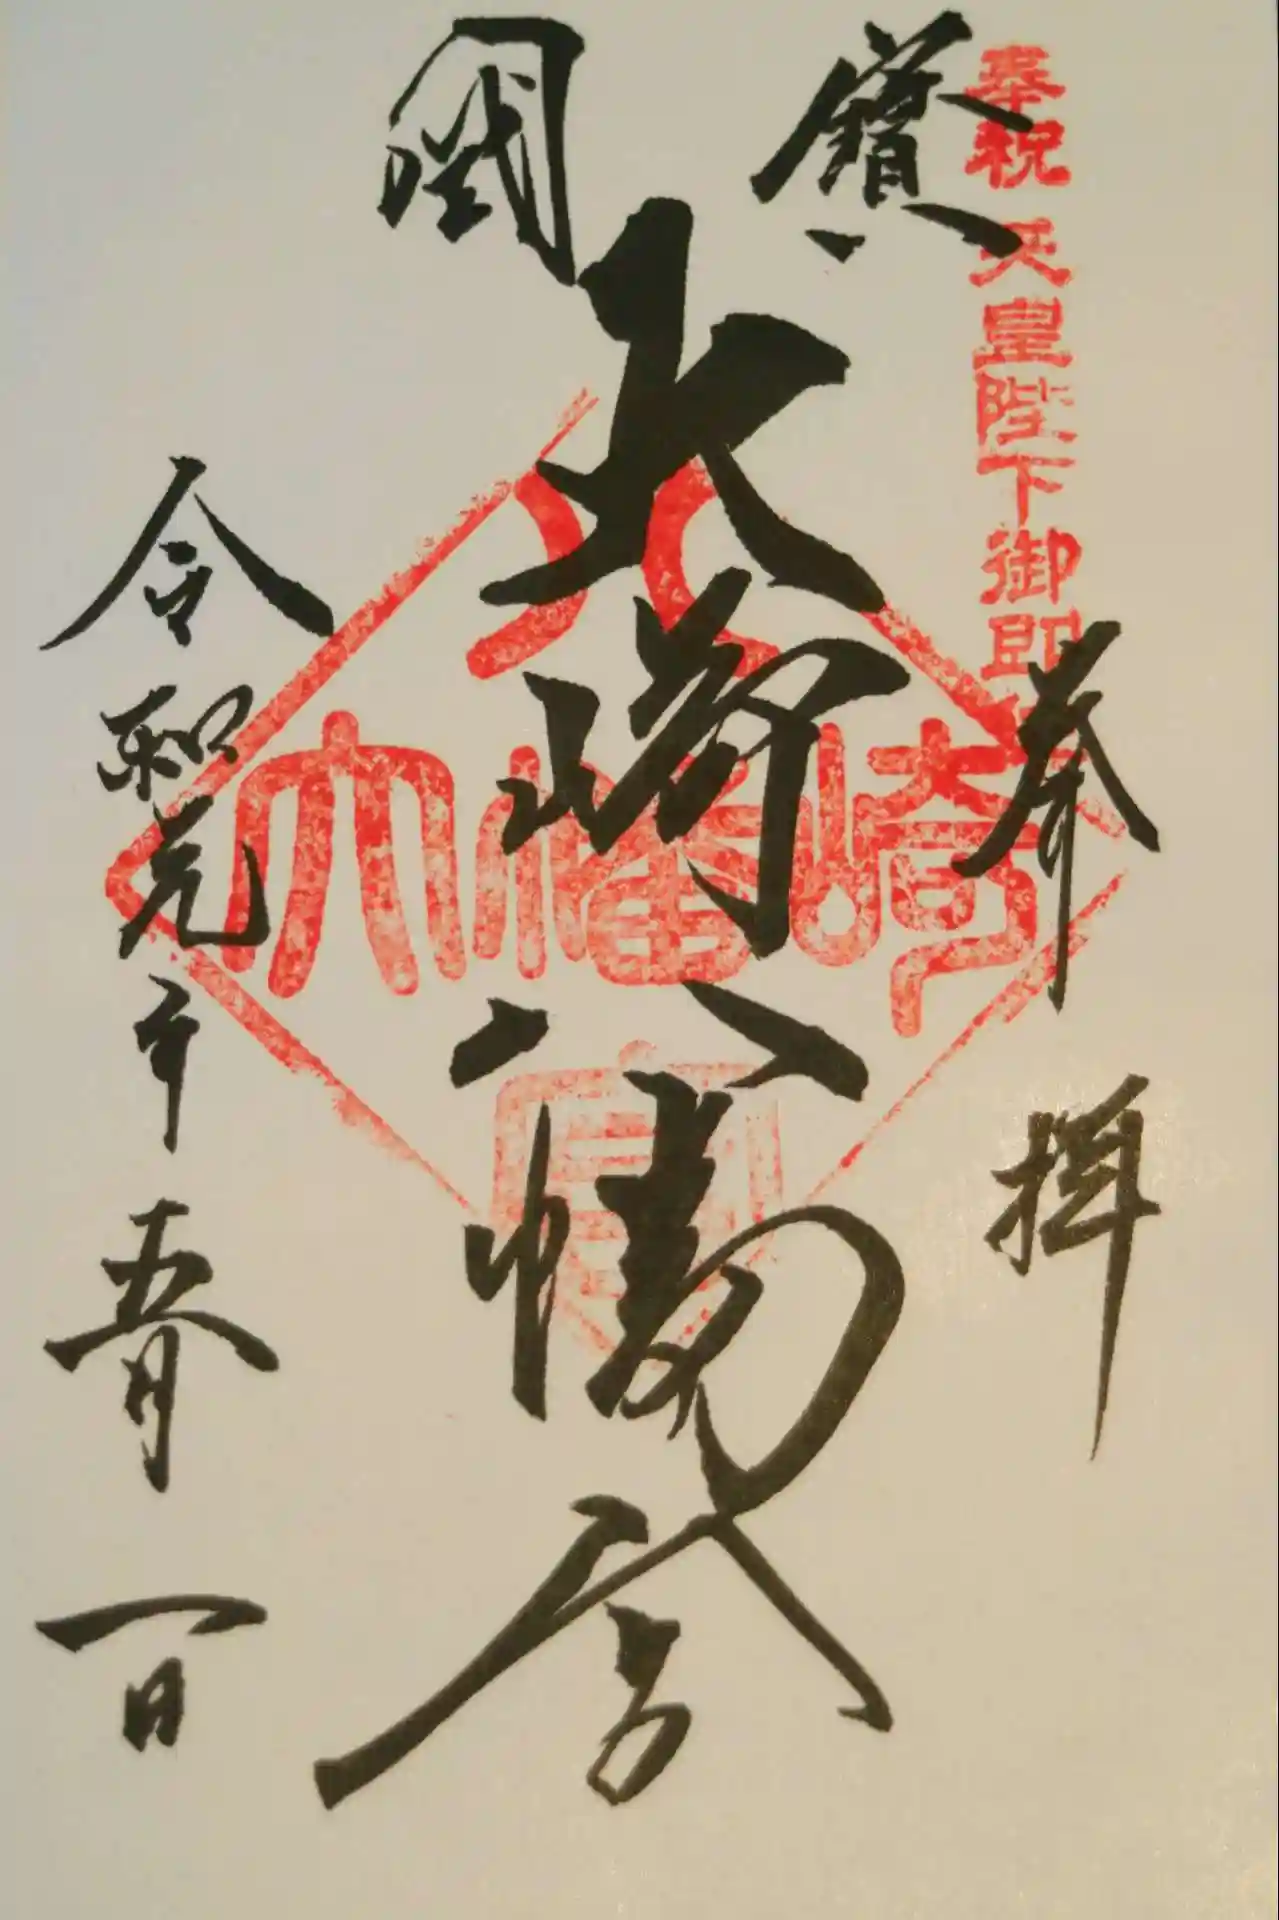 奉祝 天皇陛下御即位
奉拝
寳國
大崎八幡宮
大崎八幡宮
令和元年五月一日